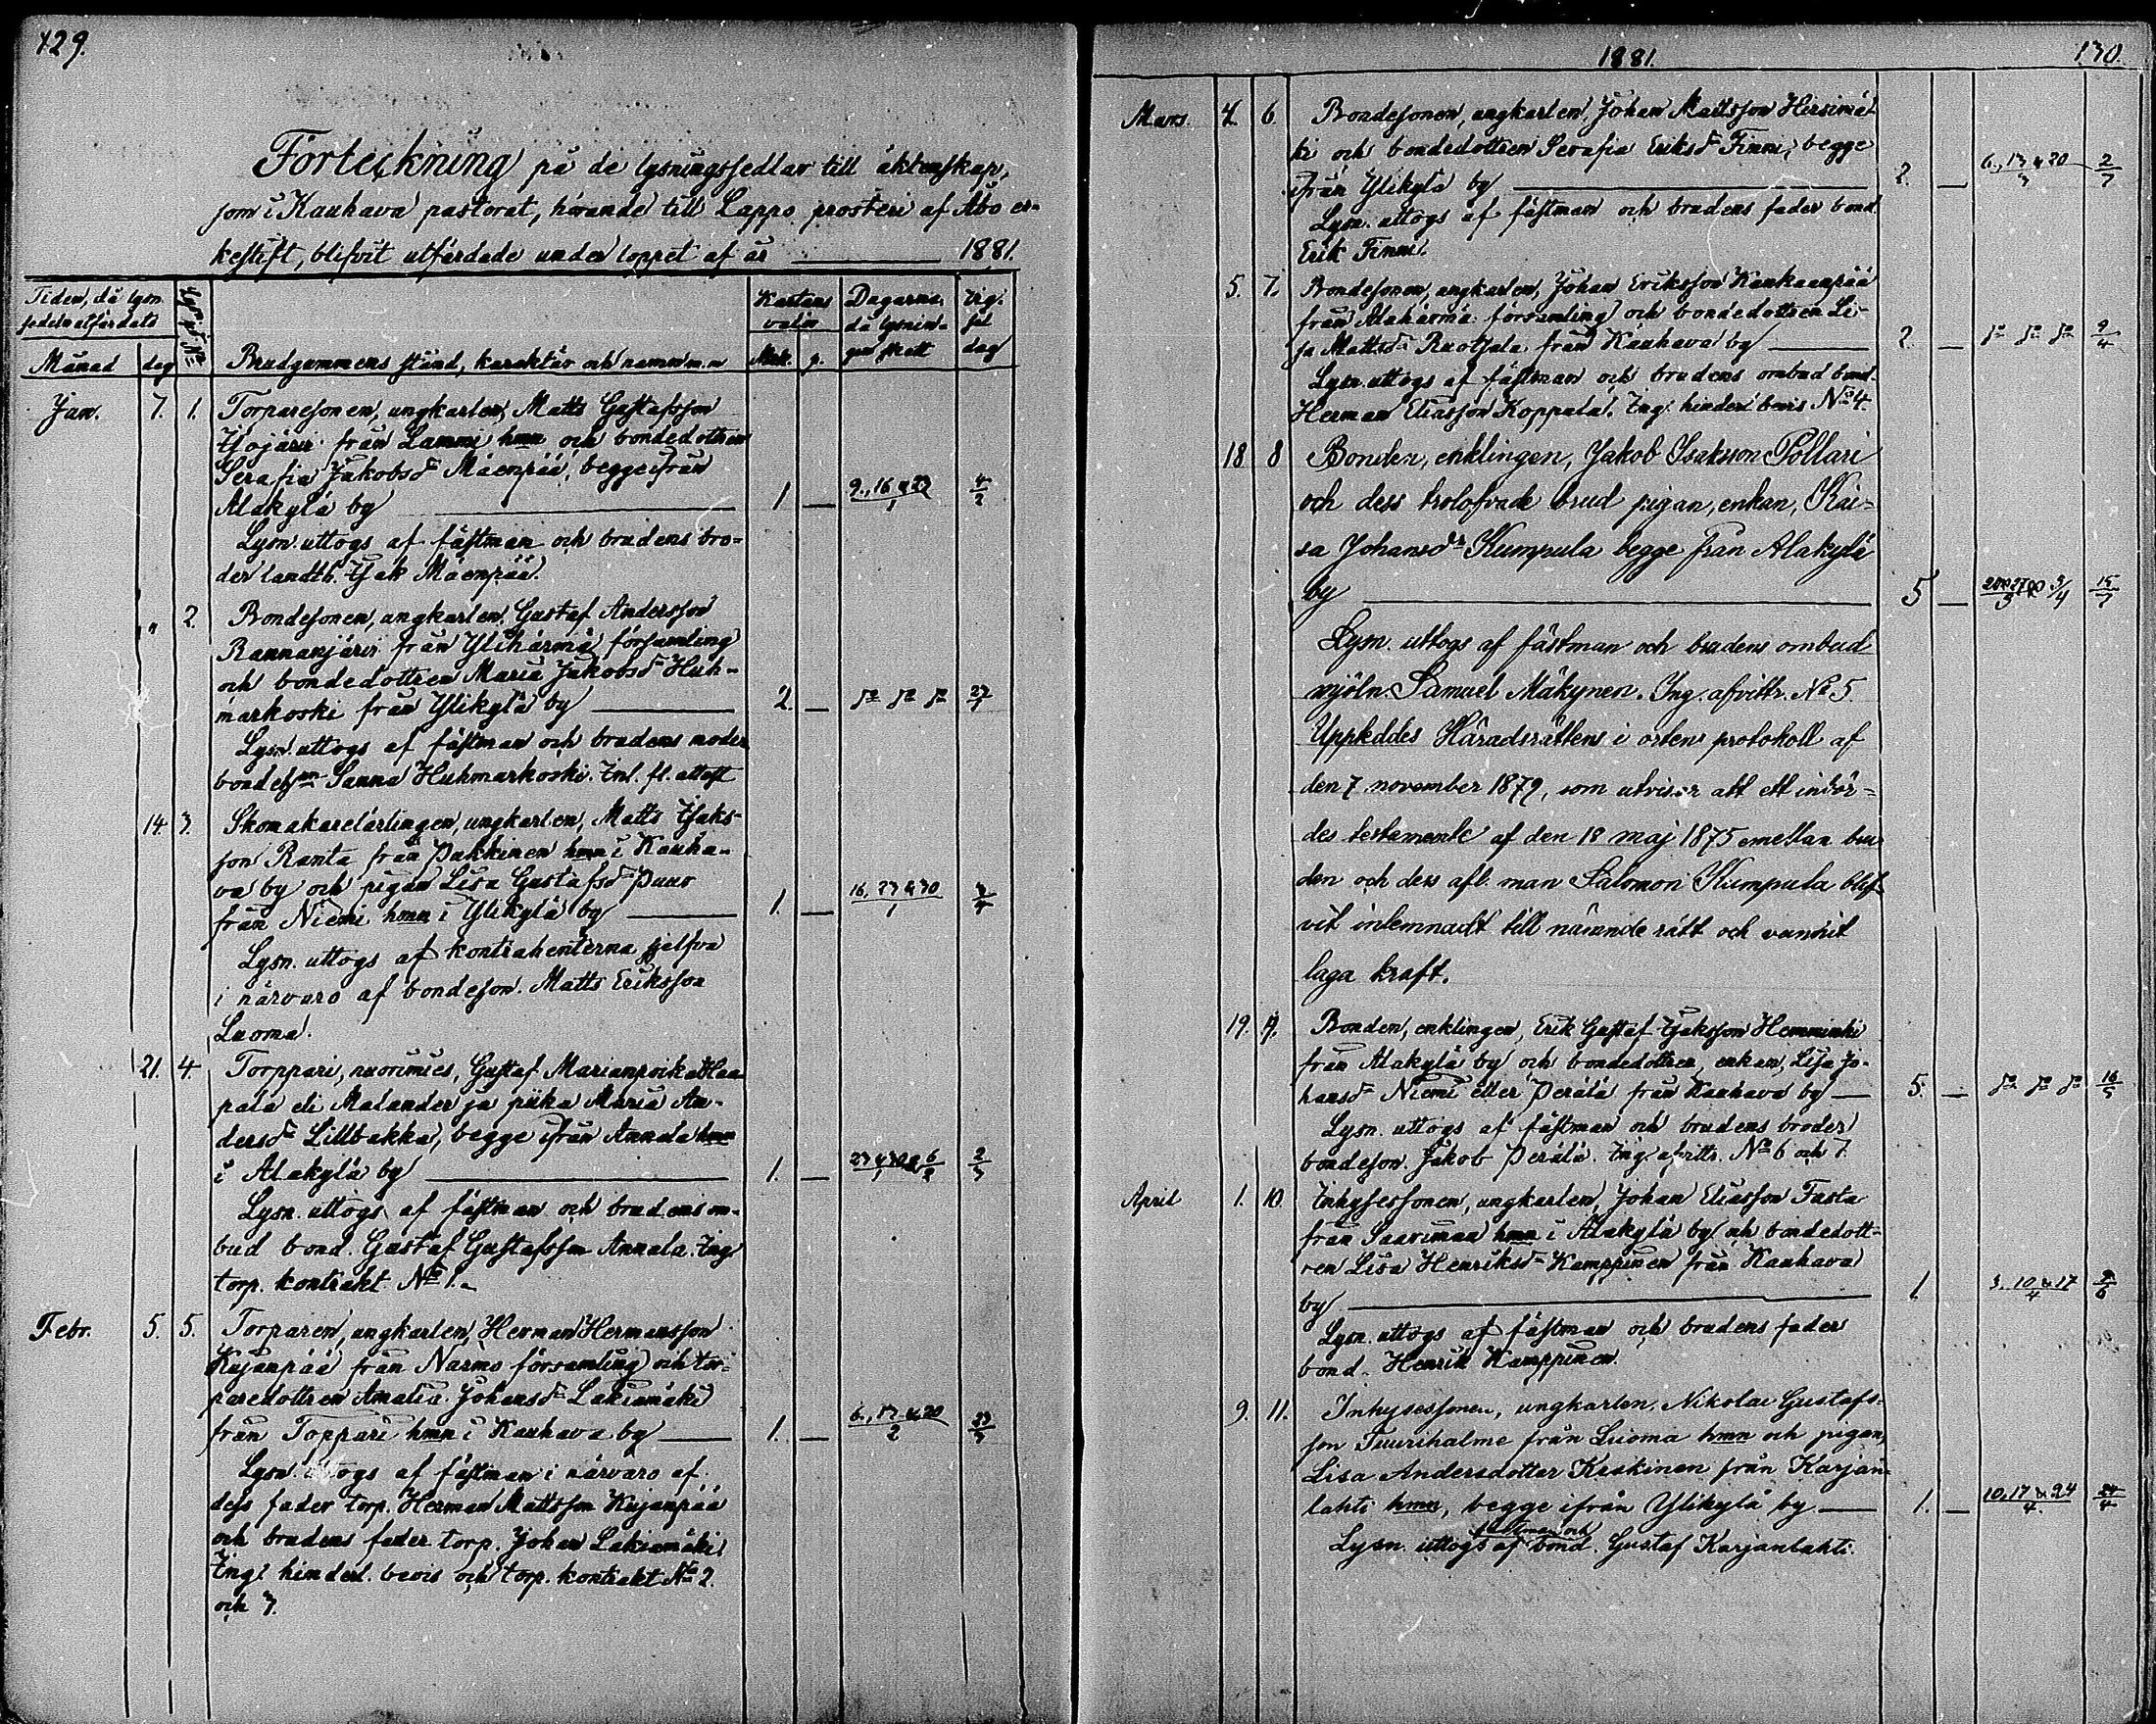 129.
Förteckning på de lysningssedlar till äktenskap,
som i Kauhava pastorat, hörande till Lappo prosteri af Åbo er-
kestift, blifvit utfärdade under loppet af år 1881.
Tiden, då lysn. sedeln utfärdats
Månad dag
Brudgummens stånd, karaktär och namn m.m
Kartans valör
Mk. p.
Dagarna då lysnin- gen skett
Vig- sel dag
Jan. 7. 1. Torparesonen, ungkarlen, Matts Gustafsson
Isojärvi från Lammi hmn och bondedottren
Serafia Jakobsdr Mäenpää, begge ifrån
Alakylä by 1 — 9., 16 & 23/1 4/2
Lysn. uttogs af fästman och brudens bro-
der landtb. Isak Mäenpää.
" 2. Bondesonen, ungkarlen, Gustaf Andersson
Rannanjärvi från Ylihärmä församling
och bondedottren Maria Jakobsdr Huh-
markoski från Ylikylä by 2. —
Lysn. uttogs af fästman och brudens moder
bondehn Sanna Huhmarkoski. Inl. fl. attest
14. 3. Skomakarelärlingen, ungkarlen, Matts Isaks-
son Ranta från Pukkinen hmn i Kauha-
va by och pigan Lisa Gustafsdr Puuro
från Niemi hmn i Ylikylä by 1. — 16. 23 & 30/1
Lysn. uttogs af kontrahenterna sjelfva
i närvaro af bondeson. Matts Eriksson
Luoma.
21. 4. Torppari, nuorimies, Gustaf Marianpoika Haa-
pala eli Malander ja piika Maria An-
dersdr Lillbakka, begge ifrån Annala hmn
i Alakylä by 1. — 2/3
Lysn. uttogs af fästman och brudens om-
bud bond. Gustaf Gustafsson Annala. Ing.
torp. kontrakt No 1.
Febr. 5. 5. Torparen, ungkarlen, Herman Hermansson
Kujanpää från Närmo församling och tor-
paredottren Amalia Johansdr Lakiamäki
från Toppari hmn i Kauhava by 1. — 6., 13 & 20/2
Lysn. uttogs af fästman i närvaro af
dess fader torp. Herman Mattsson Kujanpää
och brudens fader torp. Johan Lakiamäki.
Ing. hinderl. bevis och torp. kontrakt No 2.
och 3.
1881.
130.
Mars. 4. 6. Bondesonen, ungkarlen, Johan Mattsson Hirsimä-
ki och bondedottren Serafia Eriksdr Finni, begge
ifrån Ylikylä by 2. — 6., 13 & 20/3
Lysn. uttogs af fästman och brudens fader bond.
Erik Finni.
5. 7. Bondesonen, ungkarlen, Johan Eriksson Kankaanpää
från Alahärmä församling och bondedottren Li-
sa Mattsdr Ruotsala från Kauhava by 2. —
Lysn. uttogs af fästman och brudens ombud bond.
Herman Eliasson Koppala. Ing. hinderl. bevis No 4.
18 8 Bonden, enklingen, Jakob Isaksson Pollari
och dess trolofvade brud pigan, enkan, Kai-
sa Johansdr Kumpula begge från Alakylä
by 5 —
Lysn. uttogs af fästman och brudens ombud
mjöln. Samuel Mäkynen. Ing. afvittr. No 5.
Uppteddes Häradsrättens i orten protokoll af
den 7 november 1879, som utvisar att ett inbör-
des testamente af den 18 maj 1875 emellan bru-
den och dess afl. man Salomon Kumpula blif-
vit inlemnadt till nämnde rätt och vunnit
laga kraft.
19. 9. Bonden, enklingen, Erik Gustaf Isaksson Hemminki
från Alakylä by och bondedottren, enkan, Lisa Jo-
hansdr Niemi eller Perälä från Kauhava by 5. —
Lysn. uttogs af fästman och brudens broder
bondeson. Jakob Perälä. Ing. afvittr. No 6 och 7.
April 1. 10. Inhysessonen, ungkarlen, Johan Eliasson Fasta
från Saarimaa hmn i Alakylä by och bondedott-
ren Lisa Henriksdr Kamppinen från Kauhava
by 1. 3. 10 & 17/4
Lysn. uttogs af fästman och brudens fader
bond. Henrik Kamppinen.
9. 11. Inhysessonen, ungkarlen, Nikolai Gustafs-
son Tuurihalme från Luoma hmn och pigan,
Lisa Andersdotter Keskinen från Karjan-
lahti hmn, begge ifrån Ylikylä by 1. — 10. 17 & 24/4 24/4
Lysn. uttogs af fästman och bond. Gustaf Karjanlahti.